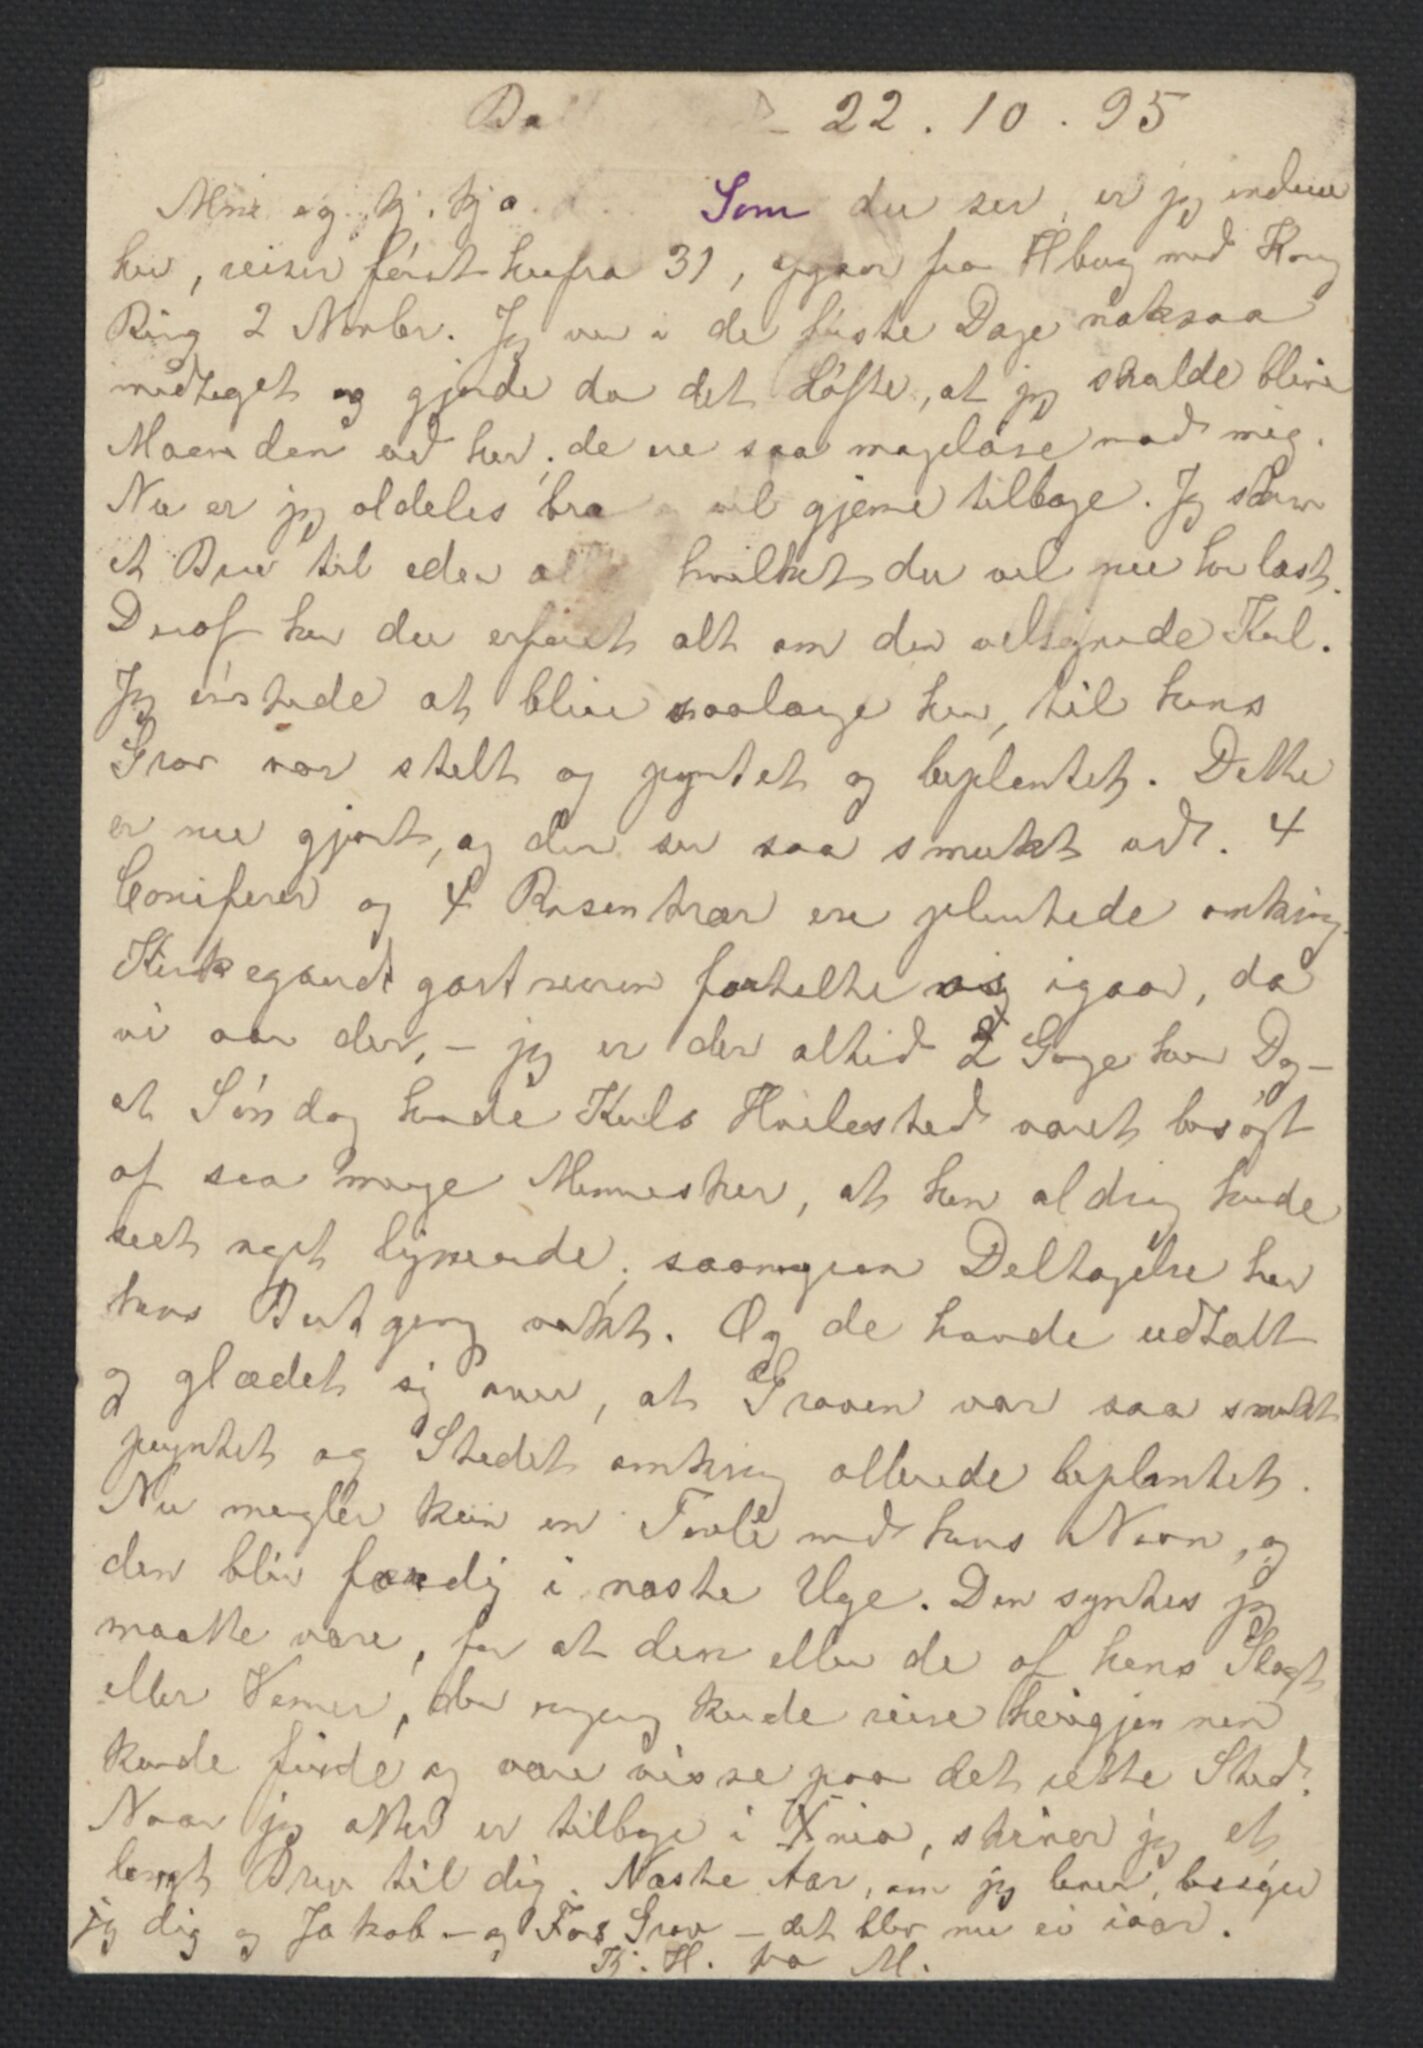 22 . 10 . 95
Som du ser, er jeg endnu
her, reiser först herfra 31, gaar fra Hburg med Kong
Ring 2 Novbr. Jeg var i de förste Dage noksaa
medtaget og gjorde da det Löfte, at jeg skulde blive
Maaneden ud her; de ere saa mageløse mod mig.
Nu er jeg aldeles bra vil gjerne tilbage. Jeg skrev
et Brev til eder alle hvilket du vel nu har læst.
Deraf har du erfaret alt om den velsignede Karl.
Jeg önskede at blive saalænge her, til hans
Grav var stelt og pyntet og beplantet. Dette
er nu gjort, og der ser saa smukt ud. 4
Coniferer og 4 Rosentrær ere plantede omkring.
Kirkegaardsgartneren fortalte mig igaar, da
vi var der, – jeg er der altid 2 Gange hver Dag –
at Söndag havde Karls Hvilested været besögt
af saa mange Mennesker, at han aldrig havde
seet noget lignende; saamegen Deltagelse har
hans Bortgang vakt. Og de havde udtalt
og glædet sig over, at Graven var saa smukt
pyntet og Stedet omkring allerede beplantet.
Nu mangler kun en Tavle med hans Navn, og
den blir færdig i næste Uge. Den syntes jeg
maatte være, for at den eller de af hans Slægt
eller Venner, der engang kunde reise herigjennem
kunde finde og være visse paa det rette Sted.
Naar jeg atter er tilbage i Xnia, skriver jeg et
langt Brev til dig. Næste Aar, om jeg lever, besöger
jeg dig og Jakob – og Fars Grav – det blev nu ei iaar.
Kj. H. fra M.